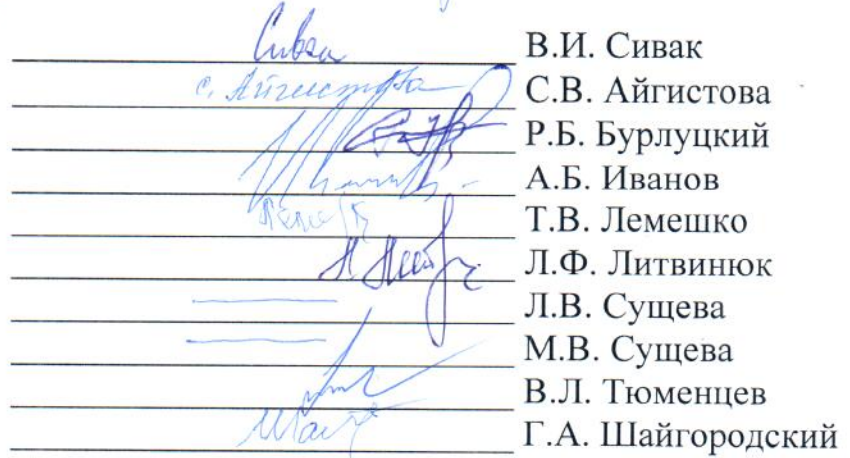 В.И. Сивак
с. Айгистова С.В. Айгистова
Р.Б. Бурлуцкий
А.Б. Иванов
Т.В. Лемешко
Л.Ф. Литвинюк
Л.В. Сущева
М.В. Сущева
В.Л. Тюменцев
Г.А. Шайгородский